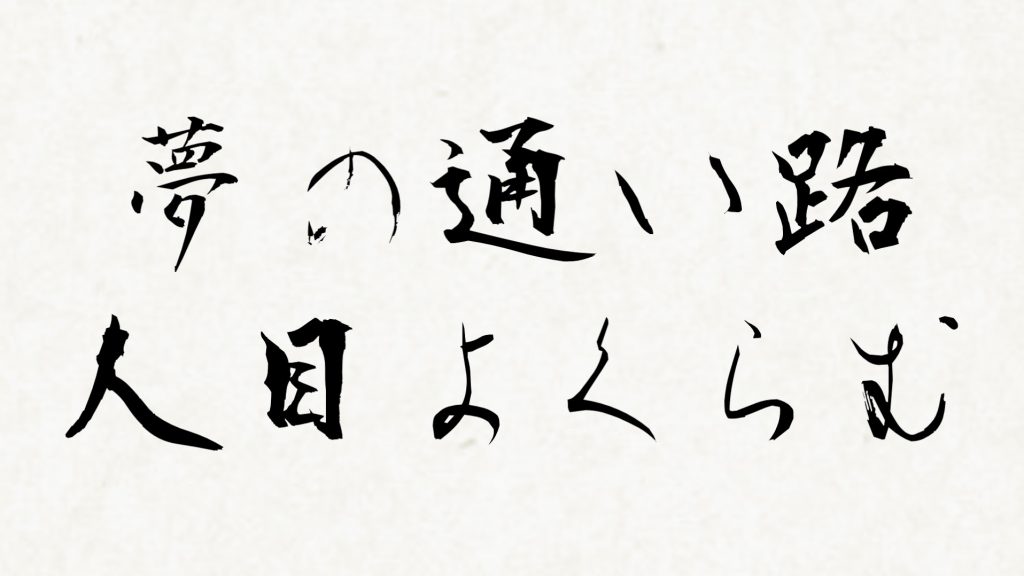 夢の通い路
人目よくらむ